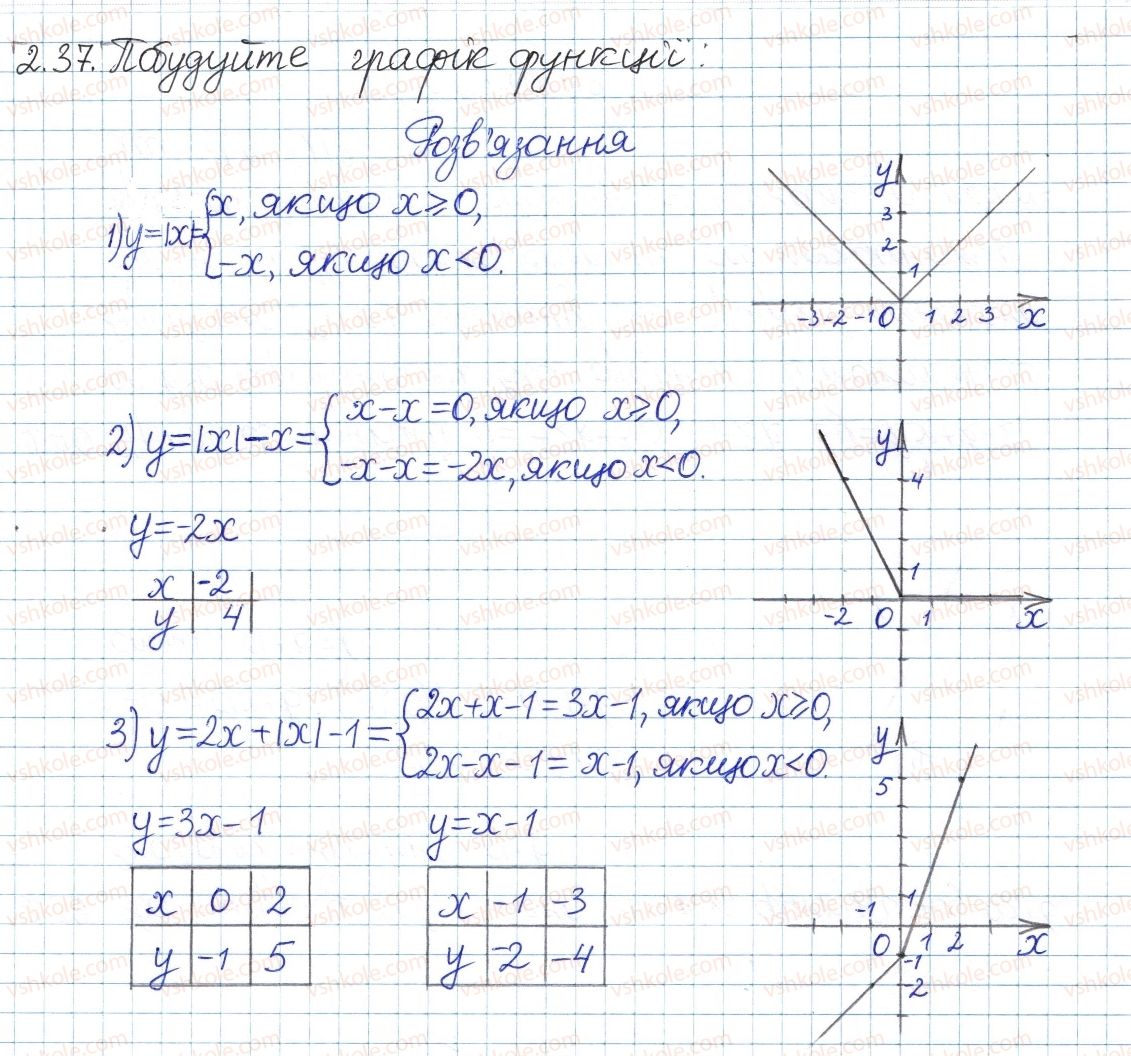 2.37. Побудуйте графік функції:
Розв'язання
1) y=|x|= { x, якщо x≥0,
-x, якщо x<0.
y
3
2
1
-3 -2 -1 0 1 2 3 x
2) y=|x|-x= { x-x=0, якщо x≥0,
-x-x=-2x, якщо x<0.
y=-2x
x | -2
y | 4
y
4
1
-2 0 1 x
3) y=2x+|x|-1= { 2x+x-1=3x-1, якщо x≥0,
2x-x-1=x-1, якщо x<0.
y=3x-1 y=x-1
x 0 2
y -1 5
x -1 -3
y -2 -4
y
5
-1 1
0 1 2 x
-1
-2
vshkole.com